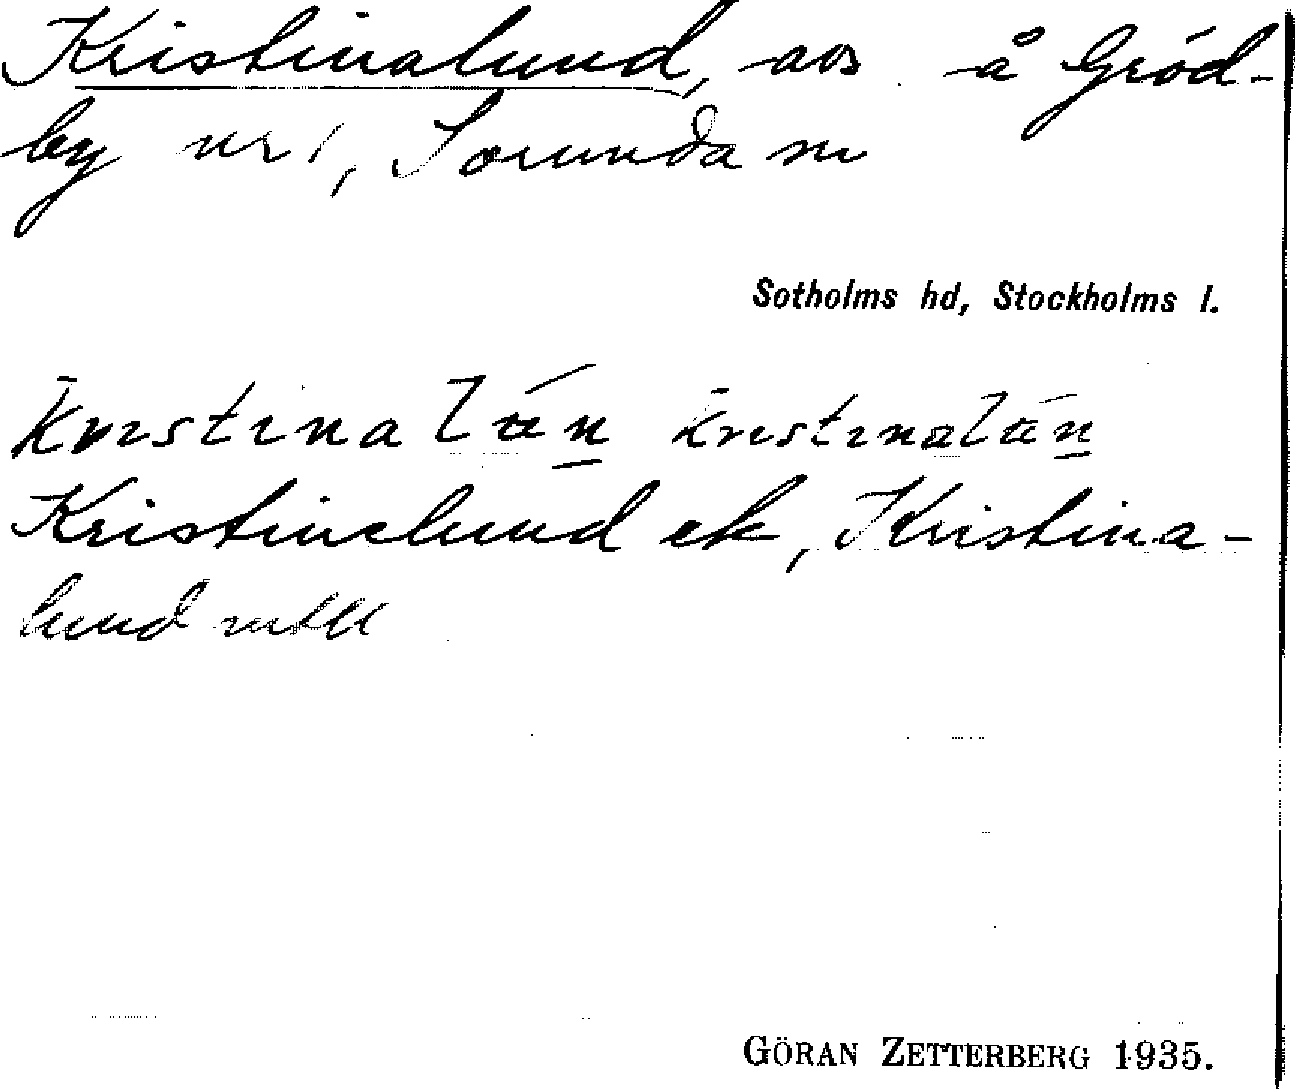 Kristinalund, avs å Gröd-
by nr 1, Sorunda sn
Sotholms hd, Stockholms l.
Kristinalund ek, Kristina-
lund
GÖRAN ZETTERBERG 1935.